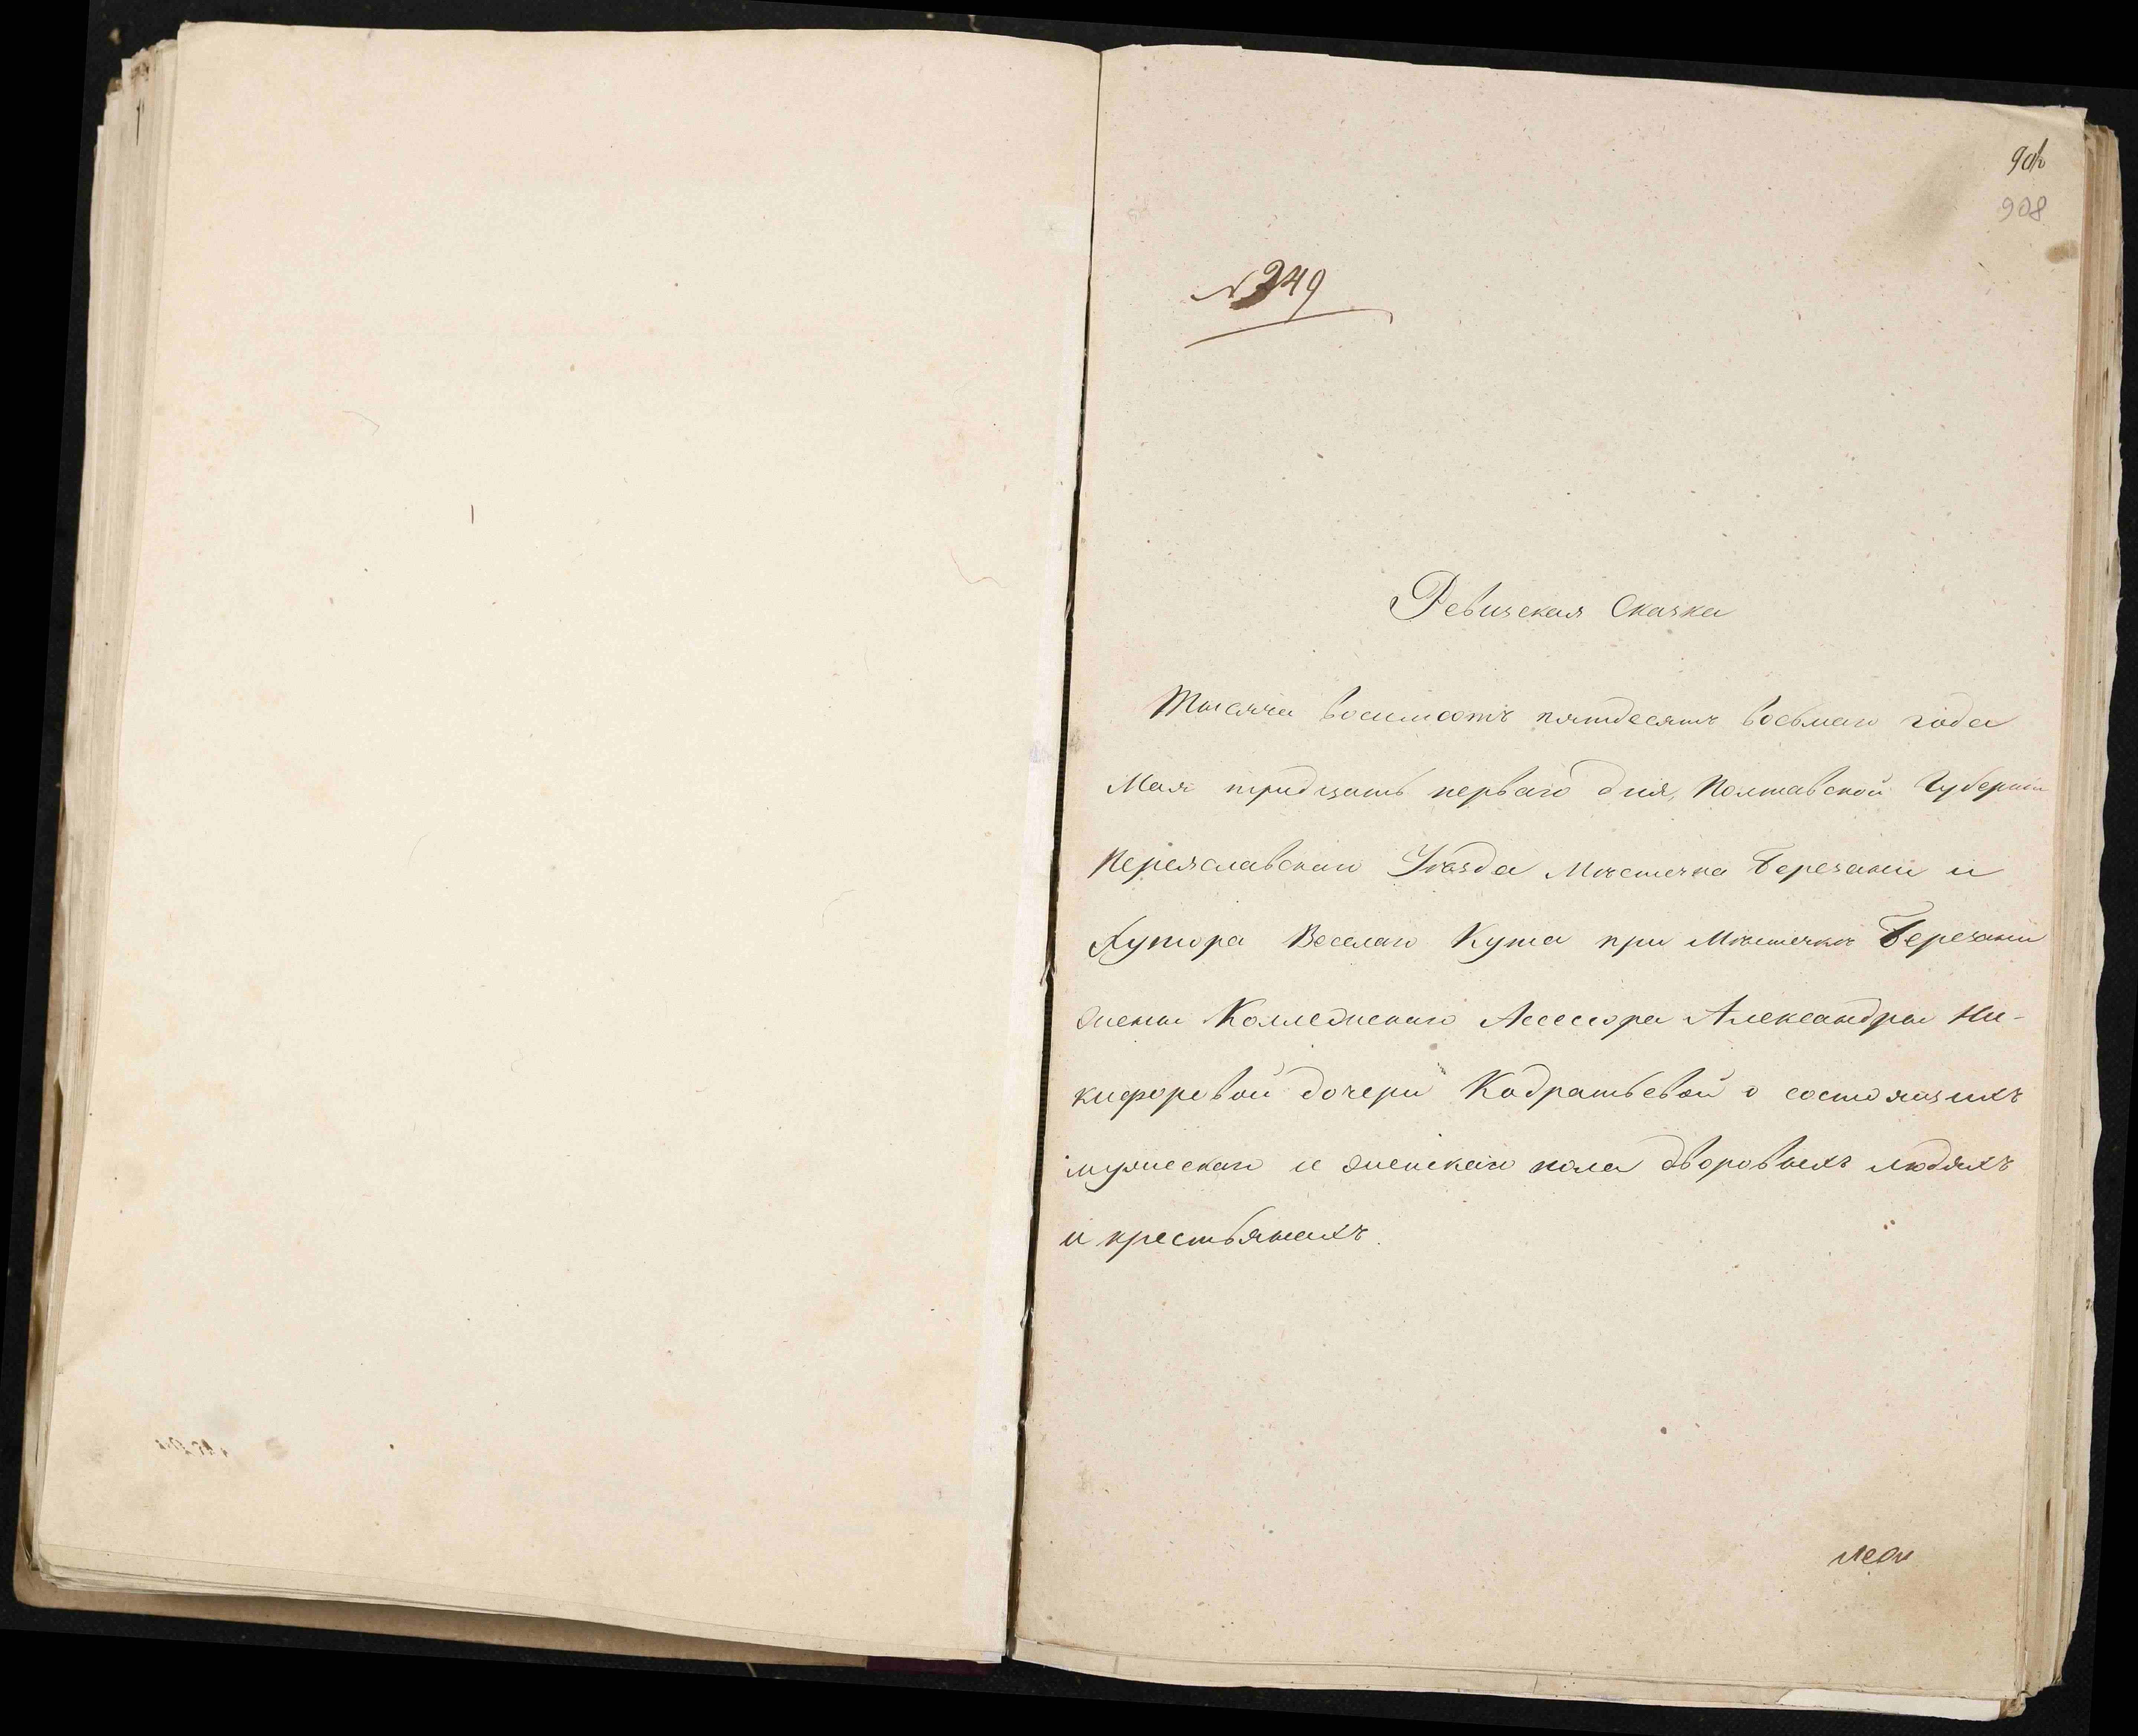 908
№ 249
Ревизская Сказка
Тысяча восемсотъ пятдесятъ восьмаго года
Мая тридцать перваго дня, Полтавской Губерніи
Переяславскаго Уѣзда Мѣстечка Березани и
Хутора Веселаго Кута при Мѣстечкѣ Березани
жены Коллежскаго Асессора Александры Ни-
кифоровой дочери Кодратьевой о состоящихъ
мужескаго и женскаго пола дворовыхъ людяхъ
и крестьянахъ.